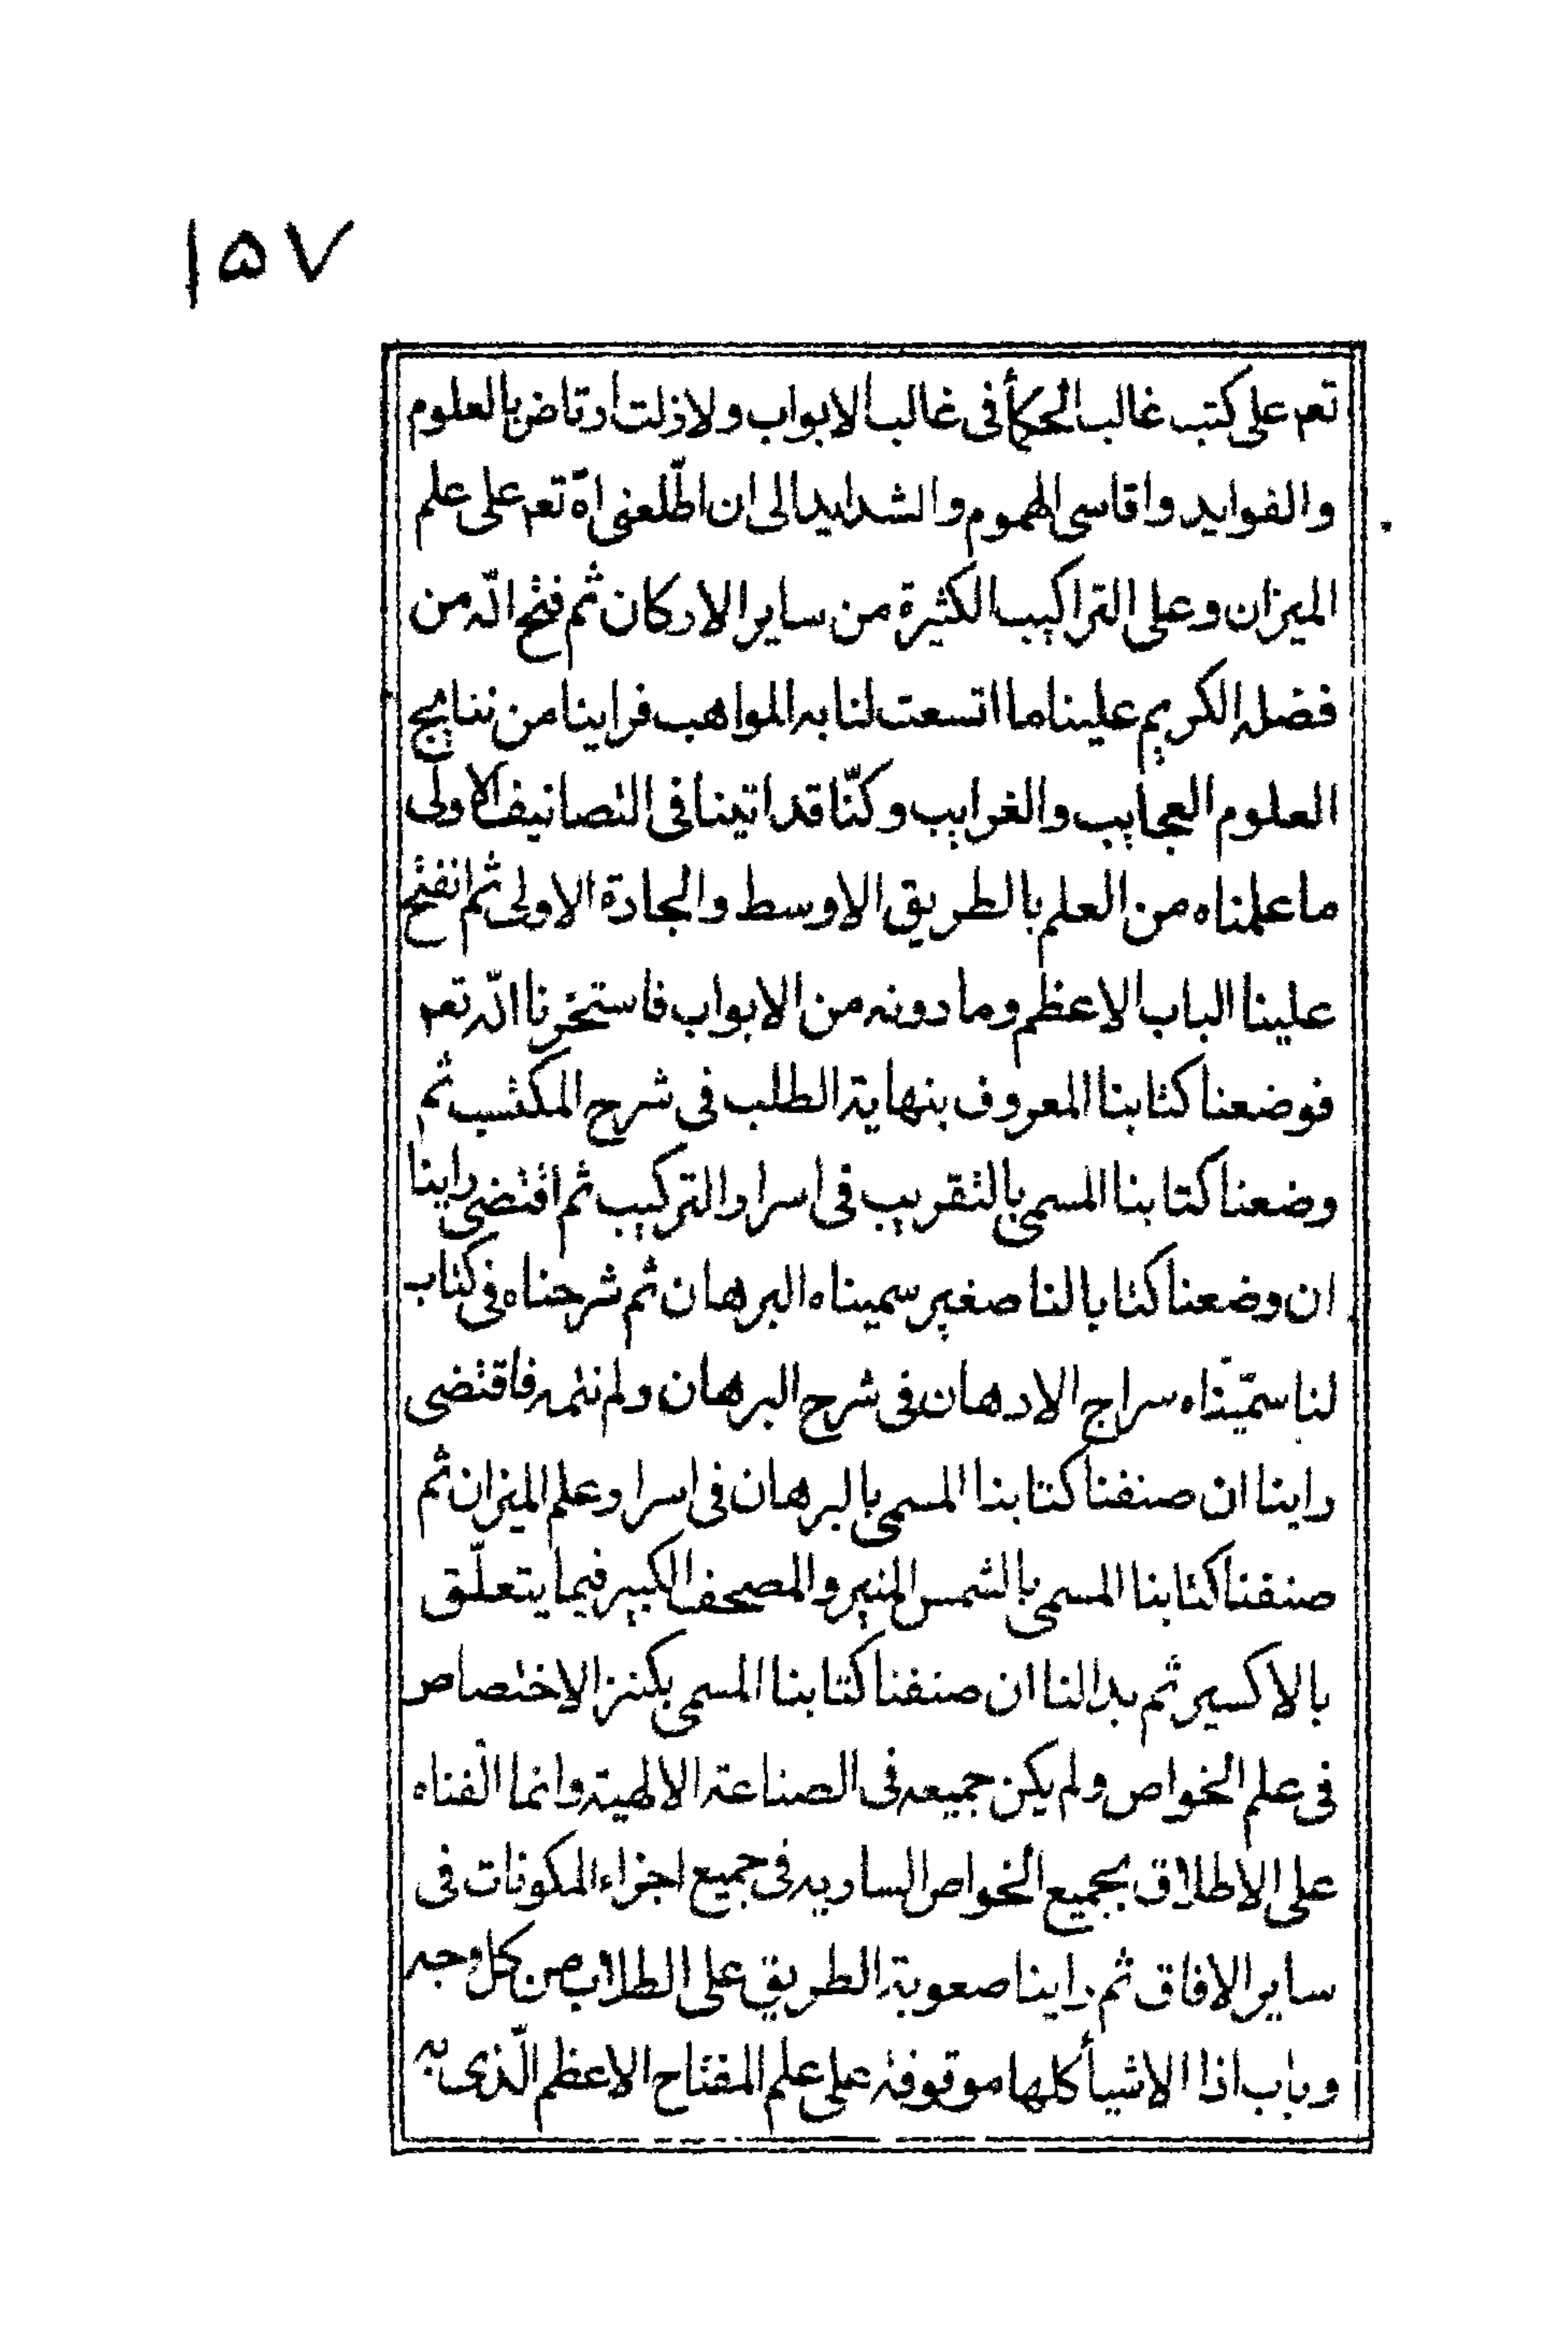 ۱۵۷
تعم على كتب غالب الحكمأ فى غالب الابواب ولازلت ارتاض بالعلوم
والفوايد واقاسى الهموم والشدايد الى ان اطّلعنى اللّه تعم على علم
الميزان وعلى التراكيب الكثيرة من ساير الاركان ثم فتح اللّه من
فضله الكريم علينا ما اتسعت لنا به المواهب فراينا من نتايج
العلوم العجايب والغرايب وكنّا قد اتينا فى التصانيف الاولى
ما علمناه من العلم بالطريق الاوسط والجادة الاولى ثم انفتح
علينا الباب الاعظم وما دونه من الابواب فاستخرنا اللّه تعم
فوضعنا كتابنا المعروف بنهاية الطلب فى شرح المكتسب ثم
وضعنا كتابنا المسمى بالتقريب فى اسرار التركيب ثم اقتضى راينا
ان وضعنا كتابا لنا صغير سميناه البرهان ثم شرحناه فى كتاب
لنا سمّيناه سراج الادهان فى شرح البرهان ولم نتمه فاقتضى
راينا ان صنفنا كتابنا المسمى بالبرهان فى اسرار علم الميزان ثم
صنفنا كتابنا المسمى بالشمس المنير والمصحف الكبير فيما يتعلّق
بالاكسير ثم بدا لنا ان صنفنا كتابنا المسمى بكنز الاختصاص
فى علم الخواص ولم يكن جميعه فى الصناعة الالهية وانما الّفناه
على الاطلاق بجميع الخواص الساريه فى جميع اجزاء المكونات فى
ساير الافاق ثم راينا صعوبة الطريق على الطلاب من كل وجه
وباب اذا الاشيأ كلها موقوفة على علم المفتاح الاعظم الّذى به